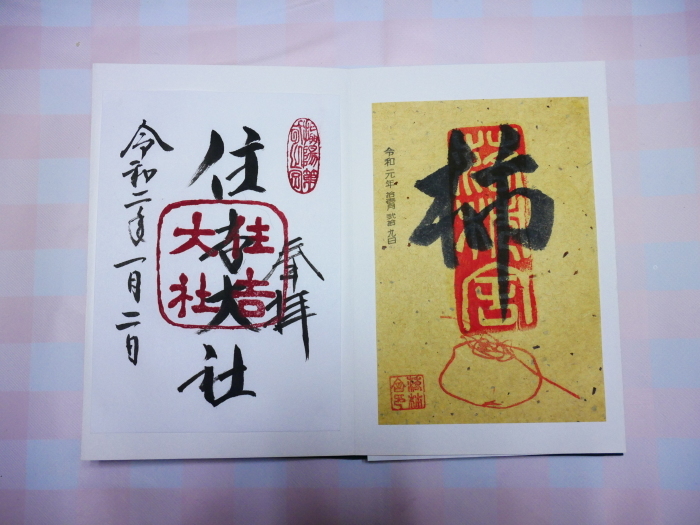 柿
落柿舎
令和元年
奉拝
住吉大社
住吉大社
令和二年一月二日